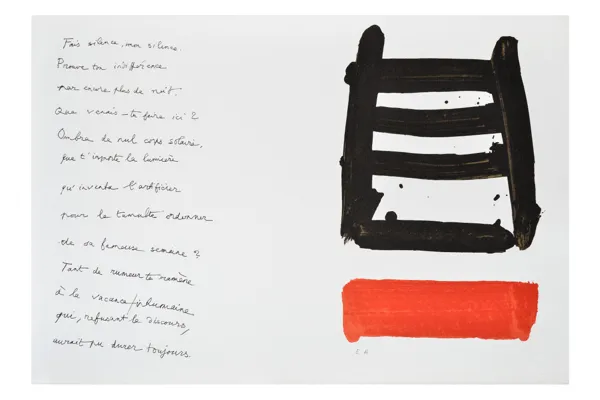 Fais silence, mon silence.
Prouve ton indifférence
par encore plus de nuit.
Que venais-tu faire ici ?
Ombre de nul corps solaire,
que t'importe la lumière
qu'inventa l'artificier
pour le tumulte ordonner
de sa fameuse semaine ?
Tant de rumeur te ramène
à la vacance
qui, refusant le discours,
aurait pu durer toujours.